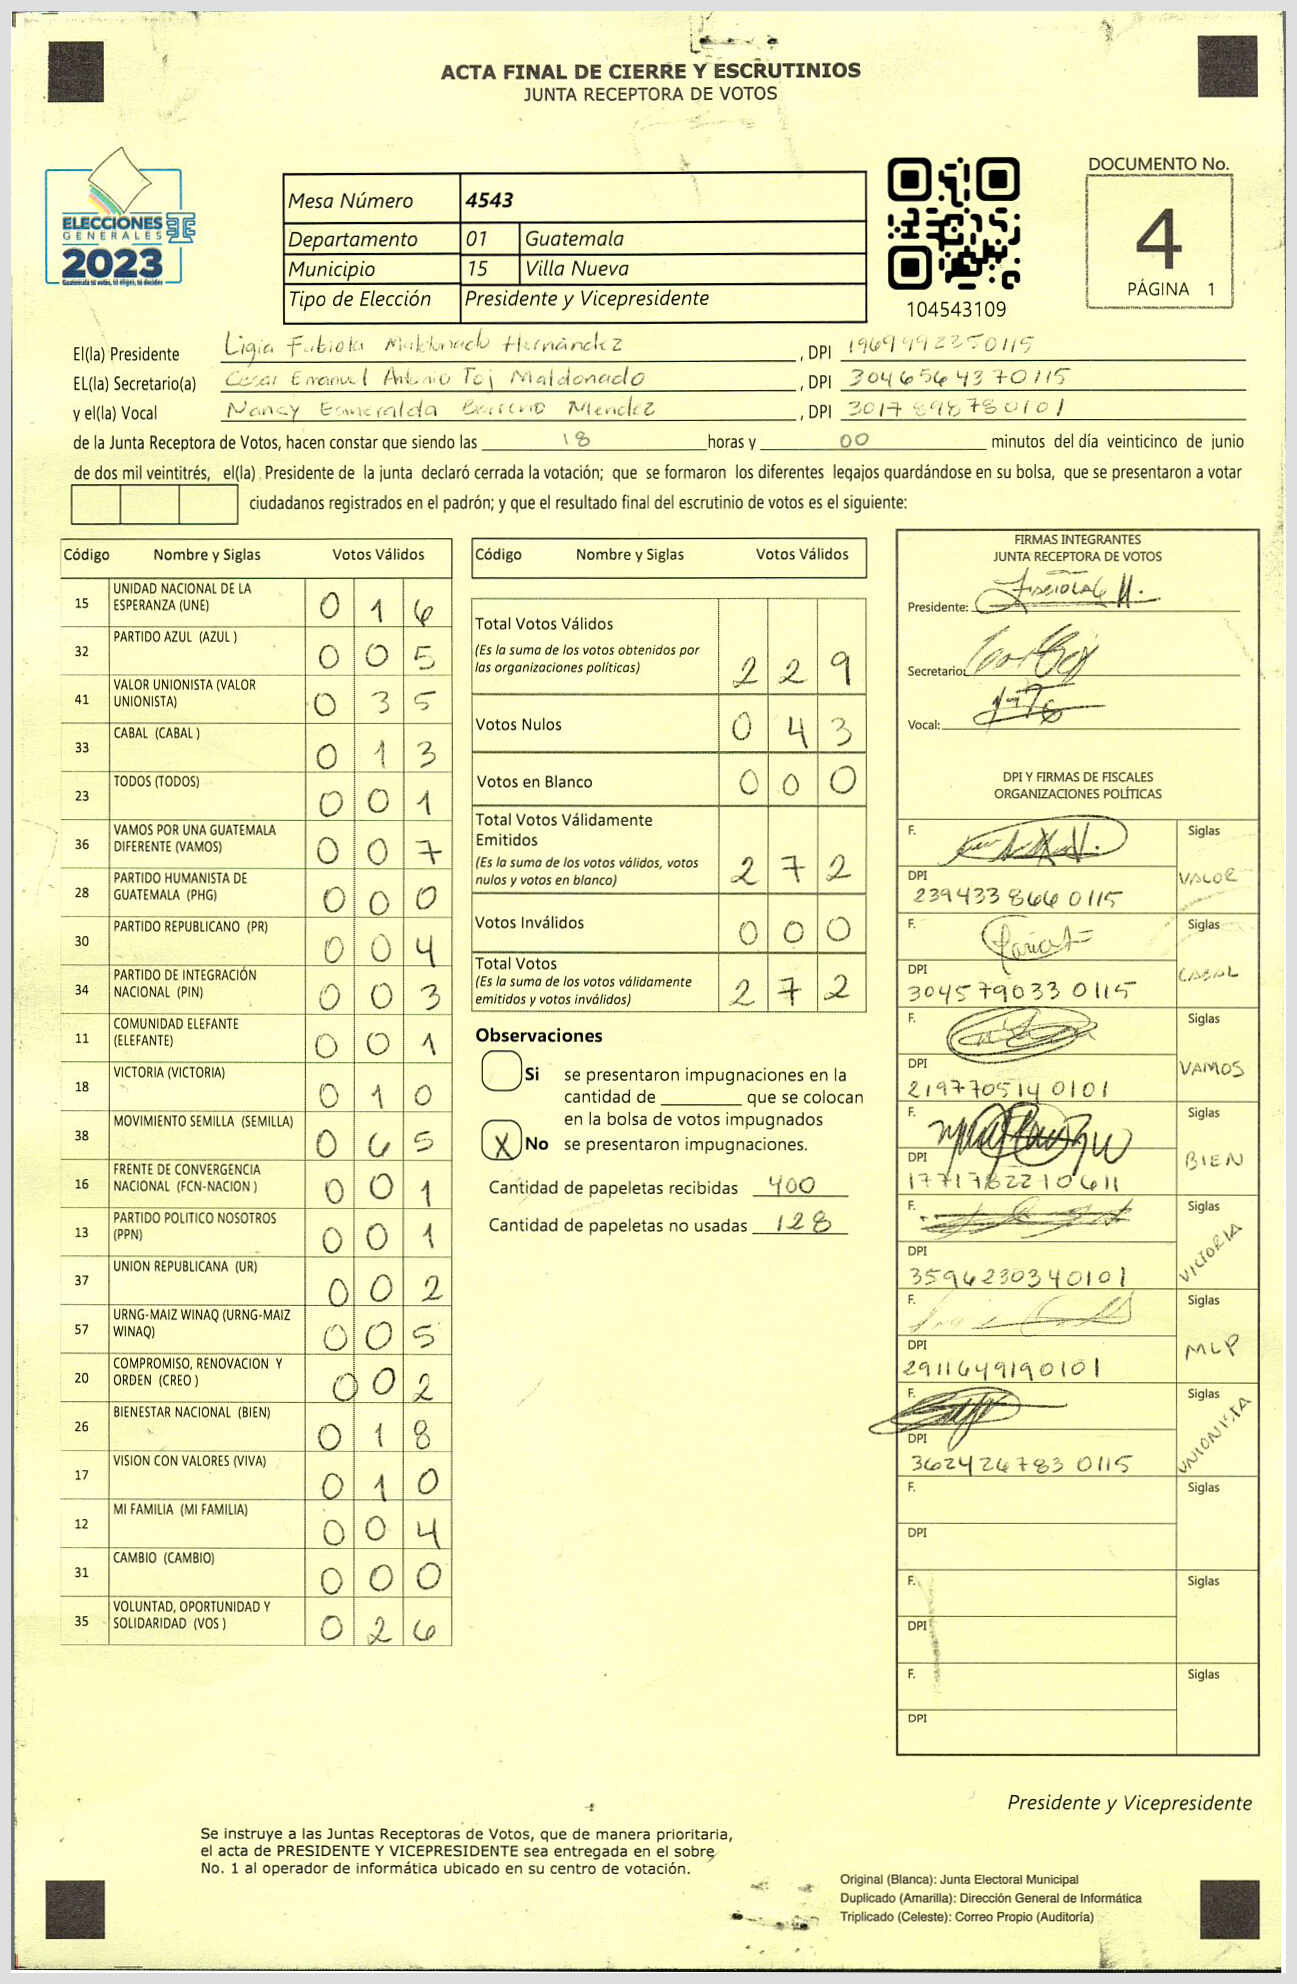 ACTA FINAL DE CIERRE Y ESCRUTINIOS
JUNTA RECEPTORA DE VOTOS
ELECCIONES
GENERALES
2023
Guatemala tú votas, tú eliges, tú decides
Mesa Número 4543
Departamento 01 Guatemala
Municipio 15 Villa Nueva
Tipo de Elección Presidente y Vicepresidente
104543109
DOCUMENTO No.
4
PÁGINA 1
El(la) Presidente Ligia Fabiola Maldonado Hernández , DPI 1969992250115
EL(la) Secretario(a) Cesar Emanuel Antonio Toj Maldonado , DPI 3046564370115
y el(la) Vocal Nancy Esmeralda Barreno Mendez , DPI 3017898780101
de la Junta Receptora de Votos, hacen constar que siendo las 18 horas y 00 minutos del día veinticinco de junio
de dos mil veintitrés, el(la) Presidente de la junta declaró cerrada la votación; que se formaron los diferentes legajos quardándose en su bolsa, que se presentaron a votar
ciudadanos registrados en el padrón; y que el resultado final del escrutinio de votos es el siguiente:
Código Nombre y Siglas Votos Válidos
15 UNIDAD NACIONAL DE LA ESPERANZA (UNE) 0 1 6
32 PARTIDO AZUL (AZUL ) 0 0 5
41 VALOR UNIONISTA (VALOR UNIONISTA) 0 3 5
33 CABAL (CABAL ) 0 1 3
23 TODOS (TODOS) 0 0 1
36 VAMOS POR UNA GUATEMALA DIFERENTE (VAMOS) 0 0 7
28 PARTIDO HUMANISTA DE GUATEMALA (PHG) 0 0 0
30 PARTIDO REPUBLICANO (PR) 0 0 4
34 PARTIDO DE INTEGRACIÓN NACIONAL (PIN) 0 0 3
11 COMUNIDAD ELEFANTE (ELEFANTE) 0 0 1
18 VICTORIA (VICTORIA) 0 1 0
38 MOVIMIENTO SEMILLA (SEMILLA) 0 6 5
16 FRENTE DE CONVERGENCIA NACIONAL (FCN-NACION ) 0 0 1
13 PARTIDO POLITICO NOSOTROS (PPN) 0 0 1
37 UNION REPUBLICANA (UR) 0 0 2
57 URNG-MAIZ WINAQ (URNG-MAIZ WINAQ) 0 0 5
20 COMPROMISO, RENOVACION Y ORDEN (CREO ) 0 0 2
26 BIENESTAR NACIONAL (BIEN) 0 1 8
17 VISION CON VALORES (VIVA) 0 1 0
12 MI FAMILIA (MI FAMILIA) 0 0 4
31 CAMBIO (CAMBIO) 0 0 0
35 VOLUNTAD, OPORTUNIDAD Y SOLIDARIDAD (VOS ) 0 2 6
Código Nombre y Siglas Votos Válidos
Total Votos Válidos 2 2 9
(Es la suma de los votos obtenidos por
las organizaciones políticas)
Votos Nulos 0 4 3
Votos en Blanco 0 0 0
Total Votos Válidamente
Emitidos 2 7 2
(Es la suma de los votos válidos, votos
nulos y votos en blanco)
Votos Inválidos 0 0 0
Total Votos 2 7 2
(Es la suma de los votos válidamente
emitidos y votos inválidos)
Observaciones
Si se presentaron impugnaciones en la
cantidad de ________ que se colocan
en la bolsa de votos impugnados
X No se presentaron impugnaciones.
Cantidad de papeletas recibidas 400
Cantidad de papeletas no usadas 128
FIRMAS INTEGRANTES
JUNTA RECEPTORA DE VOTOS
Presidente:
Secretario:
Vocal:
DPI Y FIRMAS DE FISCALES
ORGANIZACIONES POLÍTICAS
F. Siglas
DPI VALOR
239433 866 0115
F. Siglas
DPI CABAL
304579033 0115
F. Siglas
DPI VAMOS
219770514 0101
F. Siglas
DPI BIEN
1771782210611
F. Siglas
DPI VICTORIA
3596230340101
F. Siglas
DPI MLP
2911649190101
F. Siglas
DPI UNIONISTA
362426783 0115
F. Siglas
DPI
F. Siglas
DPI
F. Siglas
DPI
Presidente y Vicepresidente
Se instruye a las Juntas Receptoras de Votos, que de manera prioritaria,
el acta de PRESIDENTE Y VICEPRESIDENTE sea entregada en el sobre
No. 1 al operador de informática ubicado en su centro de votación.
Original (Blanca): Junta Electoral Municipal
Duplicado (Amarilla): Dirección General de Informática
Triplicado (Celeste): Correo Propio (Auditoría)